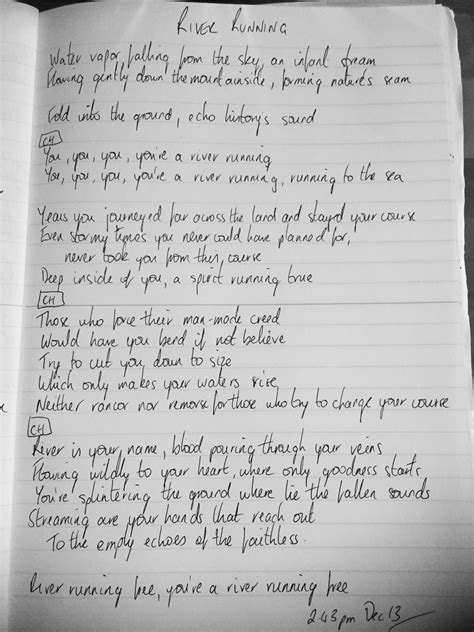 RIVER RUNNING
Water vapor falling from the sky, an infant dream
Flowing gently down the mountainside, forming nature's seam
Fold into the ground, echo history's sound
CH
You, you, you, you're a river running
You, you, you, you're a river running, running to the sea
Years you journeyed far across the land and stayed your course
Even stormy times you never could have planned for,
never took you from their course
Deep inside of you, a spirit running true
CH
Those who force their man-made creed
Would have you bend if not believe
Try to cut you down to size
Which only makes your waters rise
Neither rancor nor remorse for those who try to change your course
CH
River is your name, blood pouring through your veins
Flowing wildly to your heart, where only goodness starts
You're splintering the ground where lie the fallen sounds
Streaming are your hands that reach out
To the empty echoes of the faithless.
River running free, you're a river running free
2:43pm Dec 13